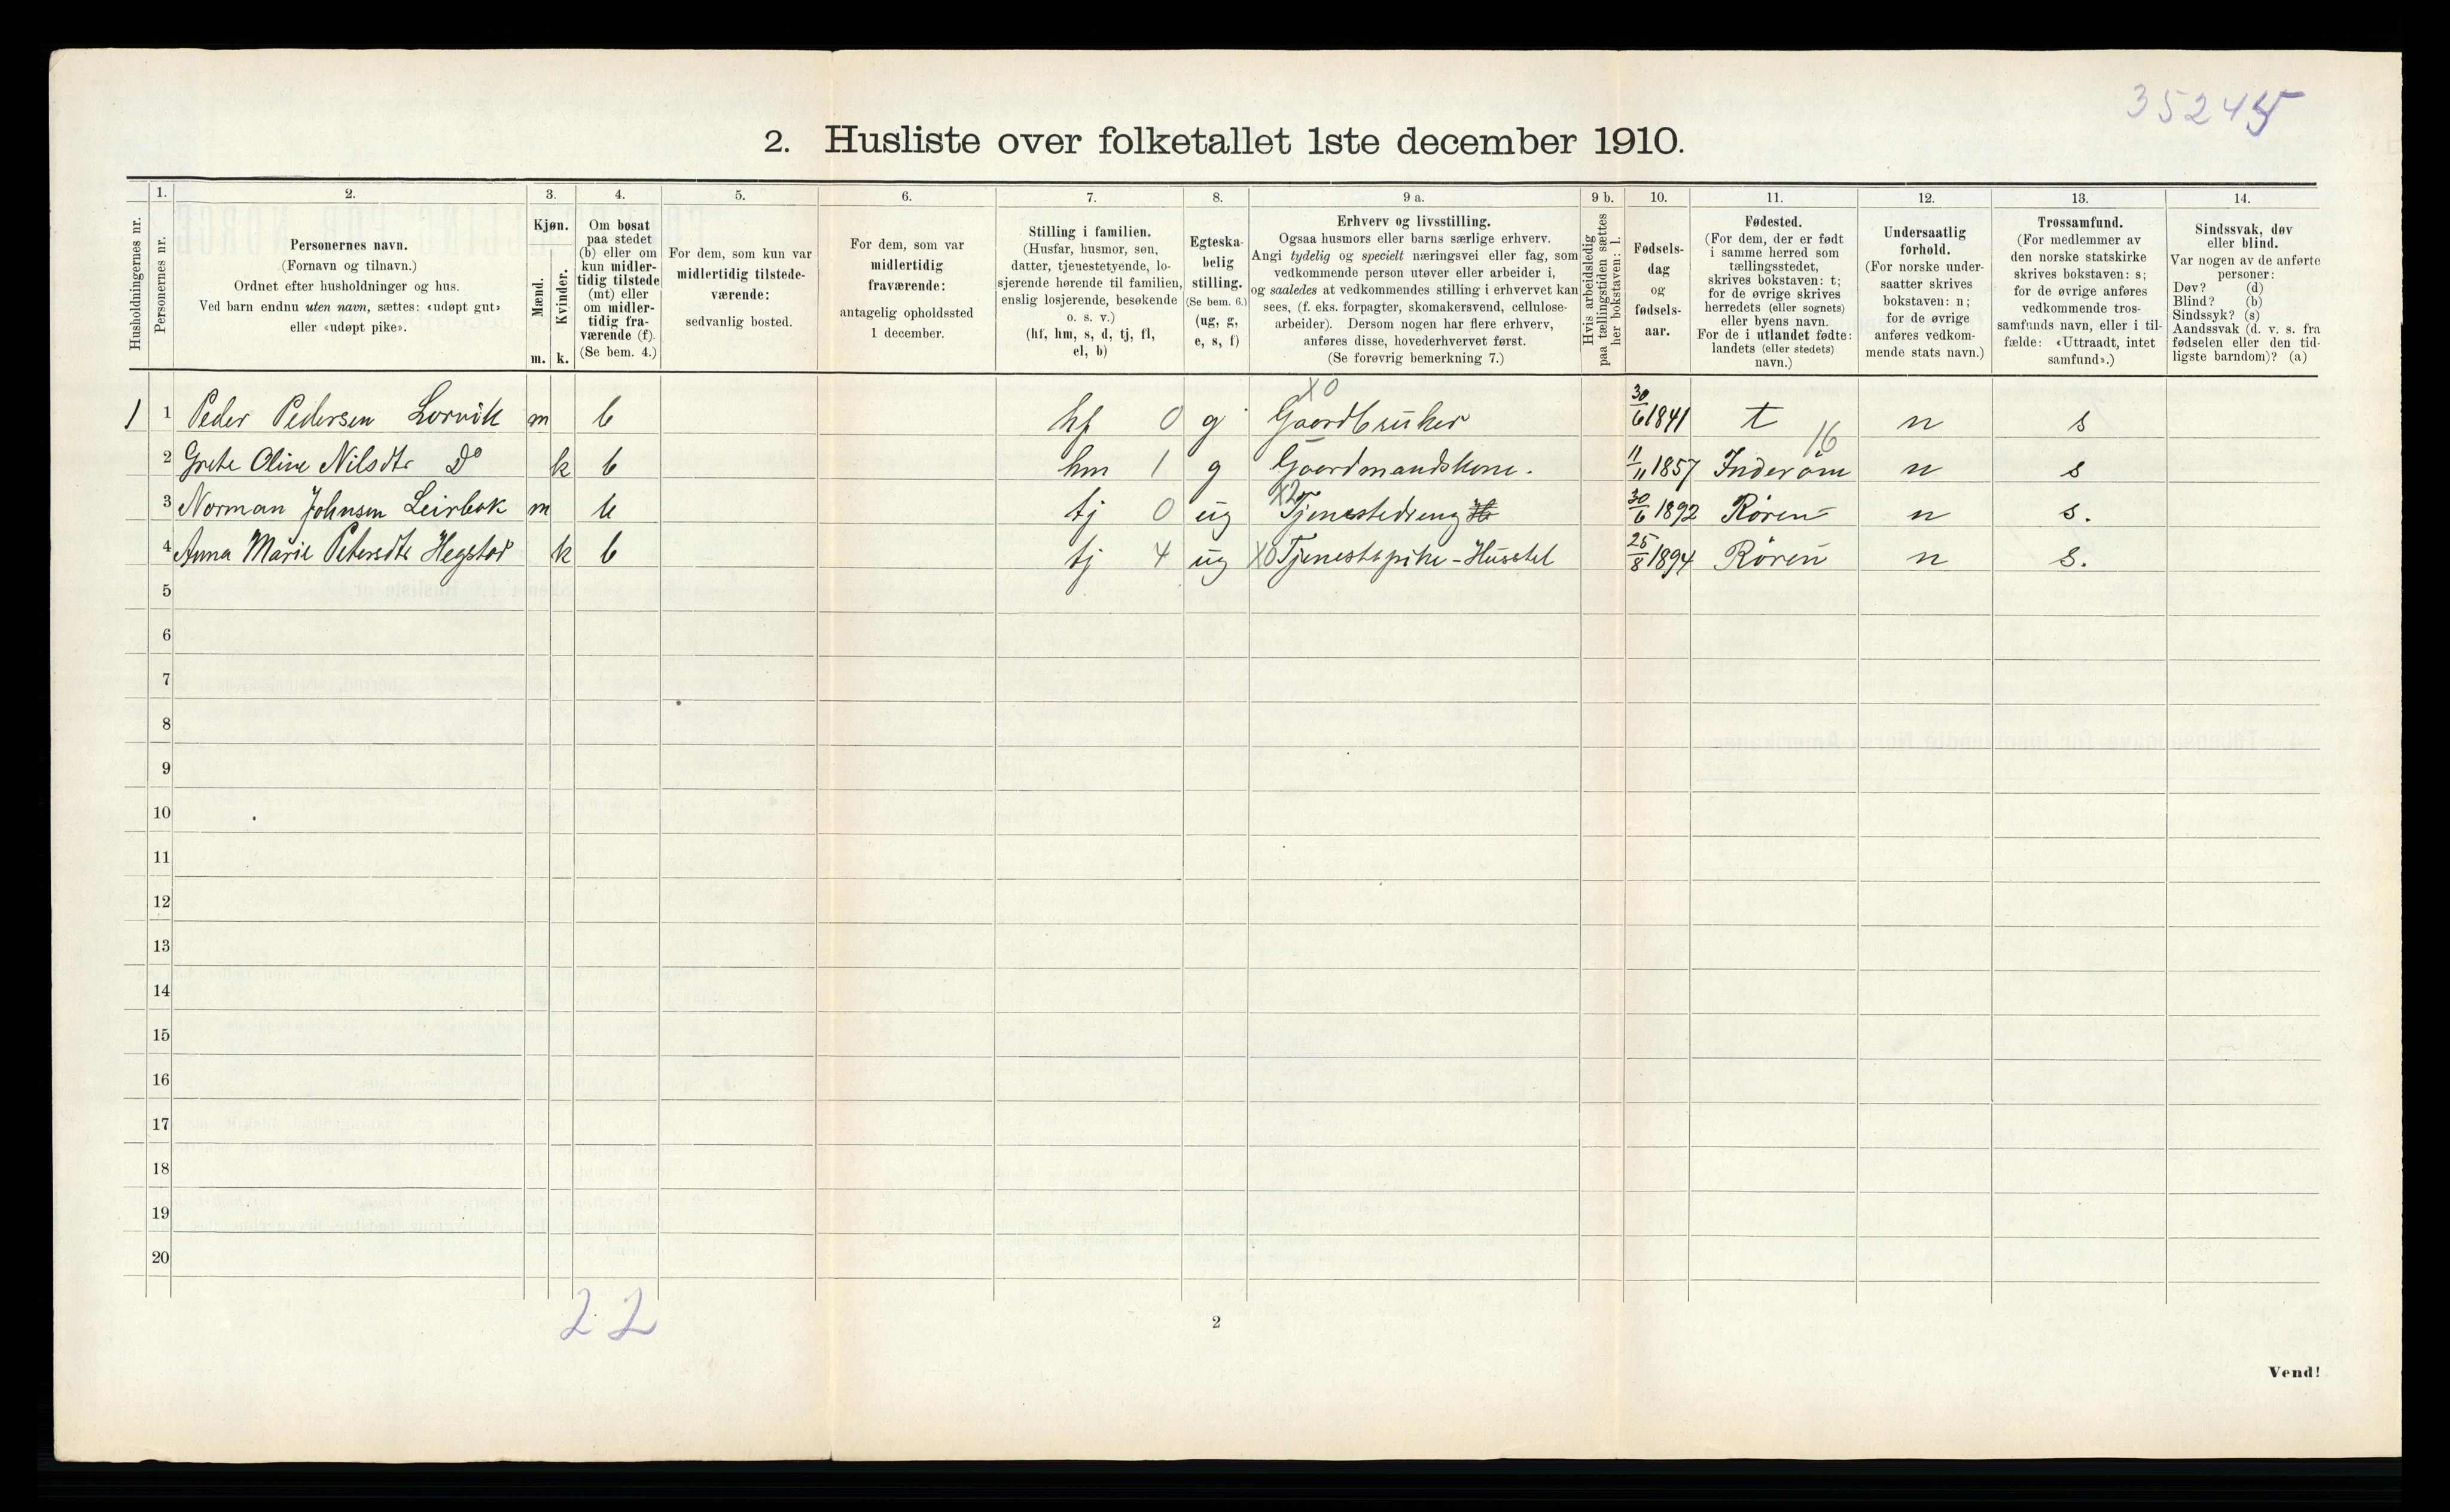 35245
2. Husliste over folketallet 1ste december 1910.
Husholdningernes nr.
1.
Personernes nr.
2.
Personernes navn.
(Fornavn og tilnavn.)
Ordnet efter husholdninger og hus.
Ved barn endnu uten navn, sættes: «udøpt gut»
eller «udøpt pike».
3.
Kjøn.
Mænd.
Kvinder.
m. k.
4.
Om bosat
paa stedet
(b) eller om
kun midler-
tidig tilstede
(mt) eller
om midler-
tidig fra-
værende (f).
(Se bem. 4.)
5.
For dem, som kun var
midlertidig tilstede-
værende:
sedvanlig bosted.
6.
For dem, som var
midlertidig
fraværende:
antagelig opholdssted
1 december.
7.
Stilling i familien.
(Husfar, husmor, søn,
datter, tjenestetyende, lo-
sjerende hørende til familien,
enslig losjerende, besøkende
o. s. v.)
(hf, hm, s, d, tj, fl,
el, b)
8.
Egteska-
belig
stilling.
(Se bem. 6.)
(ug, g,
e, s, f)
9 a.
Erhverv og livsstilling.
Ogsaa husmors eller barns særlige erhverv.
Angi tydelig og specielt næringsvei eller fag, som
vedkommende person utøver eller arbeider i,
og saaledes at vedkommendes stilling i erhvervet kan
sees, (f. eks. forpagter, skomakersvend, cellulose-
arbeider). Dersom nogen har flere erhverv,
anføres disse, hovederhvervet først.
(Se forøvrig bemerkning 7.)
9 b.
Hvis arbeidsledig
paa tællingstiden sættes
her bokstaven: l.
10.
Fødsels-
dag
og
fødsels-
aar.
11.
Fødested.
(For dem, der er født
i samme herred som
tællingsstedet,
skrives bokstaven: t;
for de øvrige skrives
herredets (eller sognets)
eller byens navn.
For de i utlandet fødte:
landets (eller stedets)
navn.)
12.
Undersaatlig
forhold.
(For norske under-
saatter skrives
bokstaven: n;
for de øvrige
anføres vedkom-
mende stats navn.)
13.
Trossamfund.
(For medlemmer av
den norske statskirke
skrives bokstaven: s;
for de øvrige anføres
vedkommende tros-
samfunds navn, eller i til-
fælde: «Uttraadt, intet
samfund».)
14.
Sindssvak, døv
eller blind.
Var nogen av de anførte
personer:
Døv? (d)
Blind? (b)
Sindssyk? (s)
Aandssvak (d. v. s. fra
fødselen eller den tid-
ligste barndom)? (a)
1 1 Peder Pedersen Lorvik m b hf 0 g X0 Gaardbruker 30/6 1841 t n s
2 Grete Oline Nilsdtr Do k b hm 1 g Gaardmandskone. 11/11 1857 Inderøen 16 n s
3 Norman Johnsen Leirbak m b tj 0 ug X2 Tjenestedreng 30/6 1892 Røren n s.
4 Anna Marie Petersdtr Hegstad k b tj 4 ug X0 Tjenestepike - Husstel 25/8 1894 Røren n s.
5
6
7
8
9
10
11
12
13
14
15
16
17
18
19
20
2 2
2
Vend!